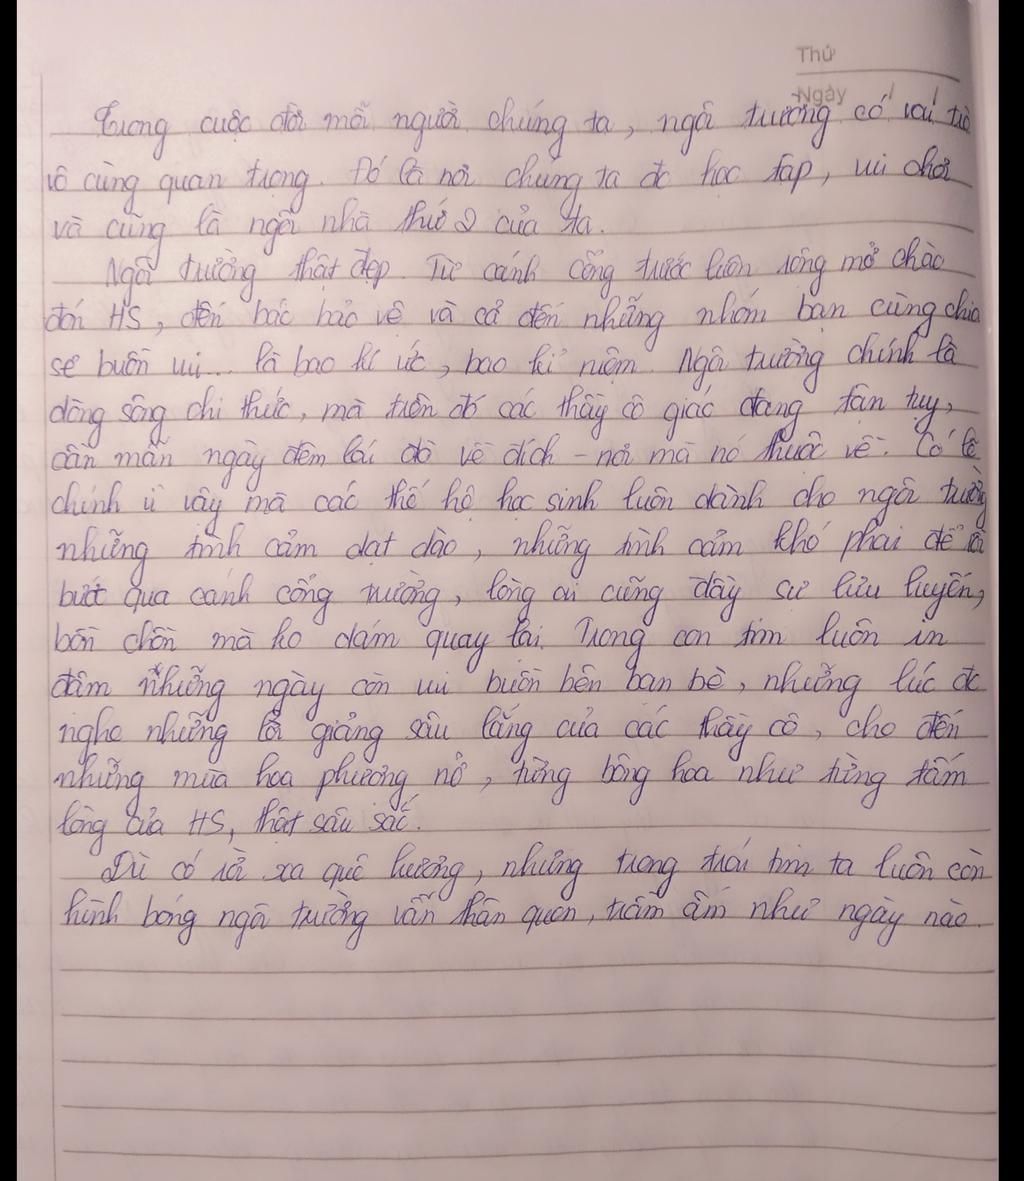 Thứ
Ngày / /
Trong cuộc đời mỗi người chúng ta, ngôi trường có vai trò
vô cùng quan trọng. Đó là nơi chúng ta đc học tập, vui chơi
và cũng là ngôi nhà thứ 2 của ta.
Ngôi trường thật đẹp. Từ cánh cổng trước luôn rộng mở chào
đón HS, đến bác bảo vệ và cả đến những nhóm bạn cùng chia
sẻ buồn vui... là bao kí ức, bao kỉ niệm. Ngôi trường chính là
dòng sông chi thức, mà trên đó các thầy cô giáo đang tận tụy,
cần mẫn ngày đêm lái đò về đích - nơi mà nó thuộc về. Có lẽ
chính vì vậy mà các thế hệ học sinh luôn dành cho ngôi trường
những tình cảm dạt dào, những tình cảm khó phai để rồi
bướt qua cánh cổng trường, lòng ai cũng đầy sự lưu luyến,
bồn chồn mà ko dám quay lại. Trong con tim luôn in
đậm những ngày còn vui buồn bên bạn bè, những lúc đc
nghe những lời giảng sâu lắng của các thầy cô, cho đến
những mùa hoa phượng nở, từng bông hoa như từng tấm
lòng của HS, thật sâu sắc.
Dù có rời xa quê hương, nhưng trong trái tim ta luôn còn
hình bóng ngôi trường vẫn thân quen, trầm ấm như ngày nào.